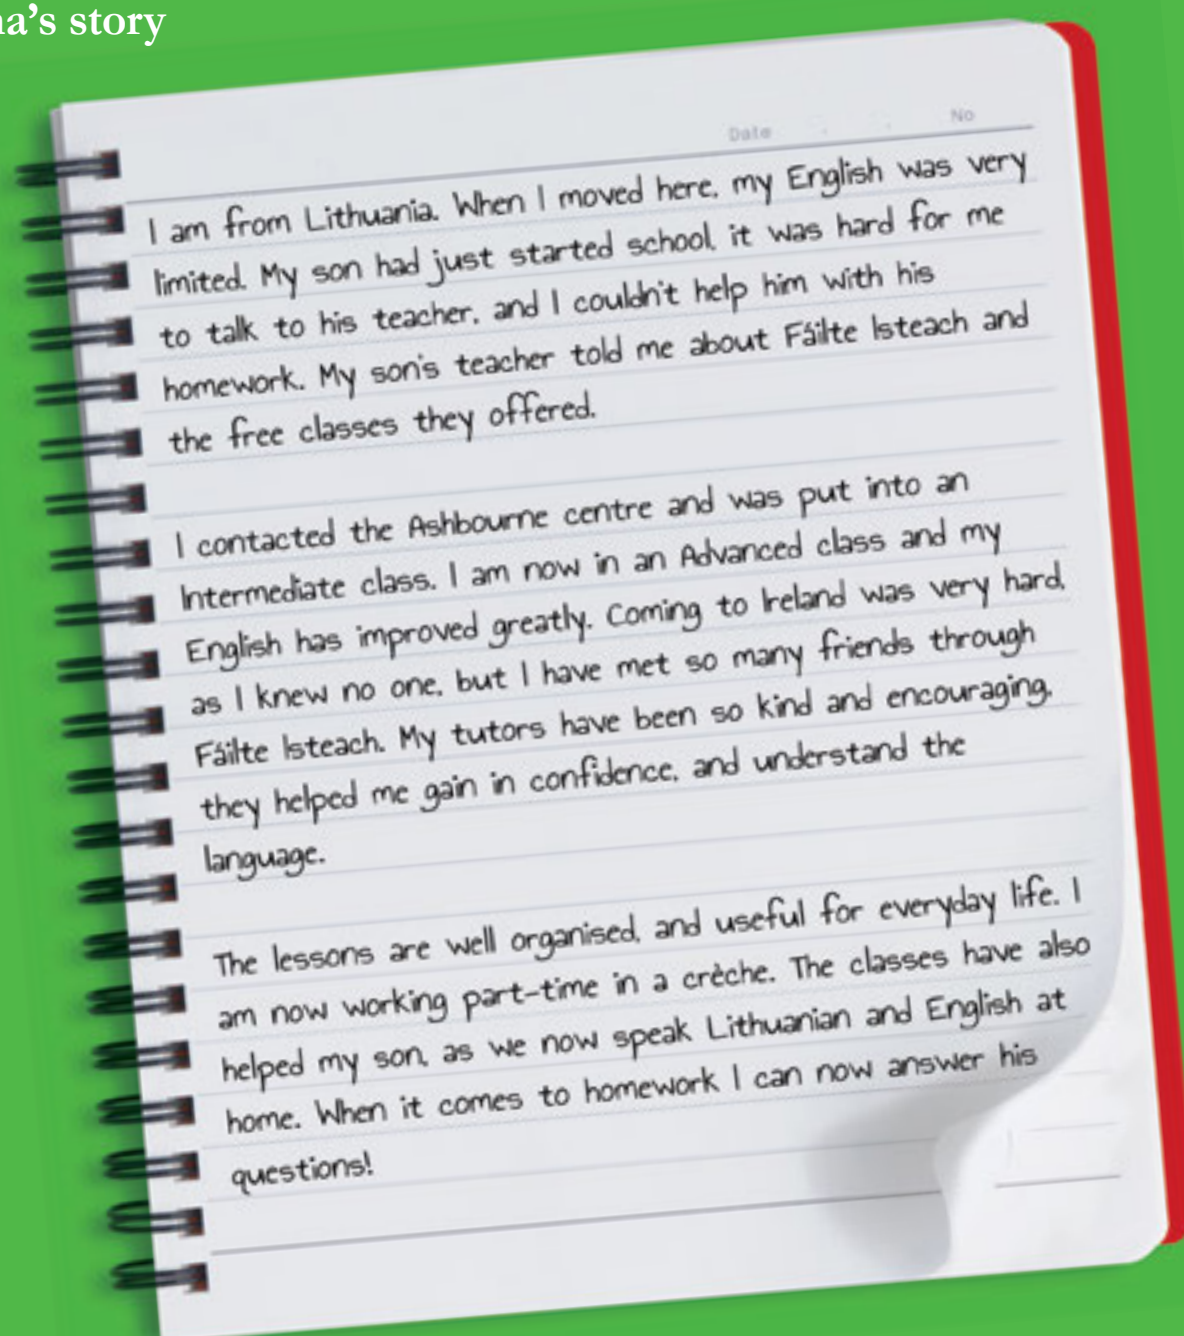 a's story
Date No
I am from Lithuania. When I moved here, my English was very
limited. My son had just started school, it was hard for me
to talk to his teacher, and I couldn't help him with his
homework. My son's teacher told me about Fáilte Isteach and
the free classes they offered.
I contacted the Ashbourne centre and was put into an
Intermediate class. I am now in an Advanced class and my
English has improved greatly. Coming to Ireland was very hard,
as I knew no one, but I have met so many friends through
Fáilte Isteach. My tutors have been so kind and encouraging,
they helped me gain in confidence, and understand the
language.
The lessons are well organised, and useful for everyday life. I
am now working part-time in a crèche. The classes have also
helped my son, as we now speak Lithuanian and English at
home. When it comes to homework I can now answer his
questions!